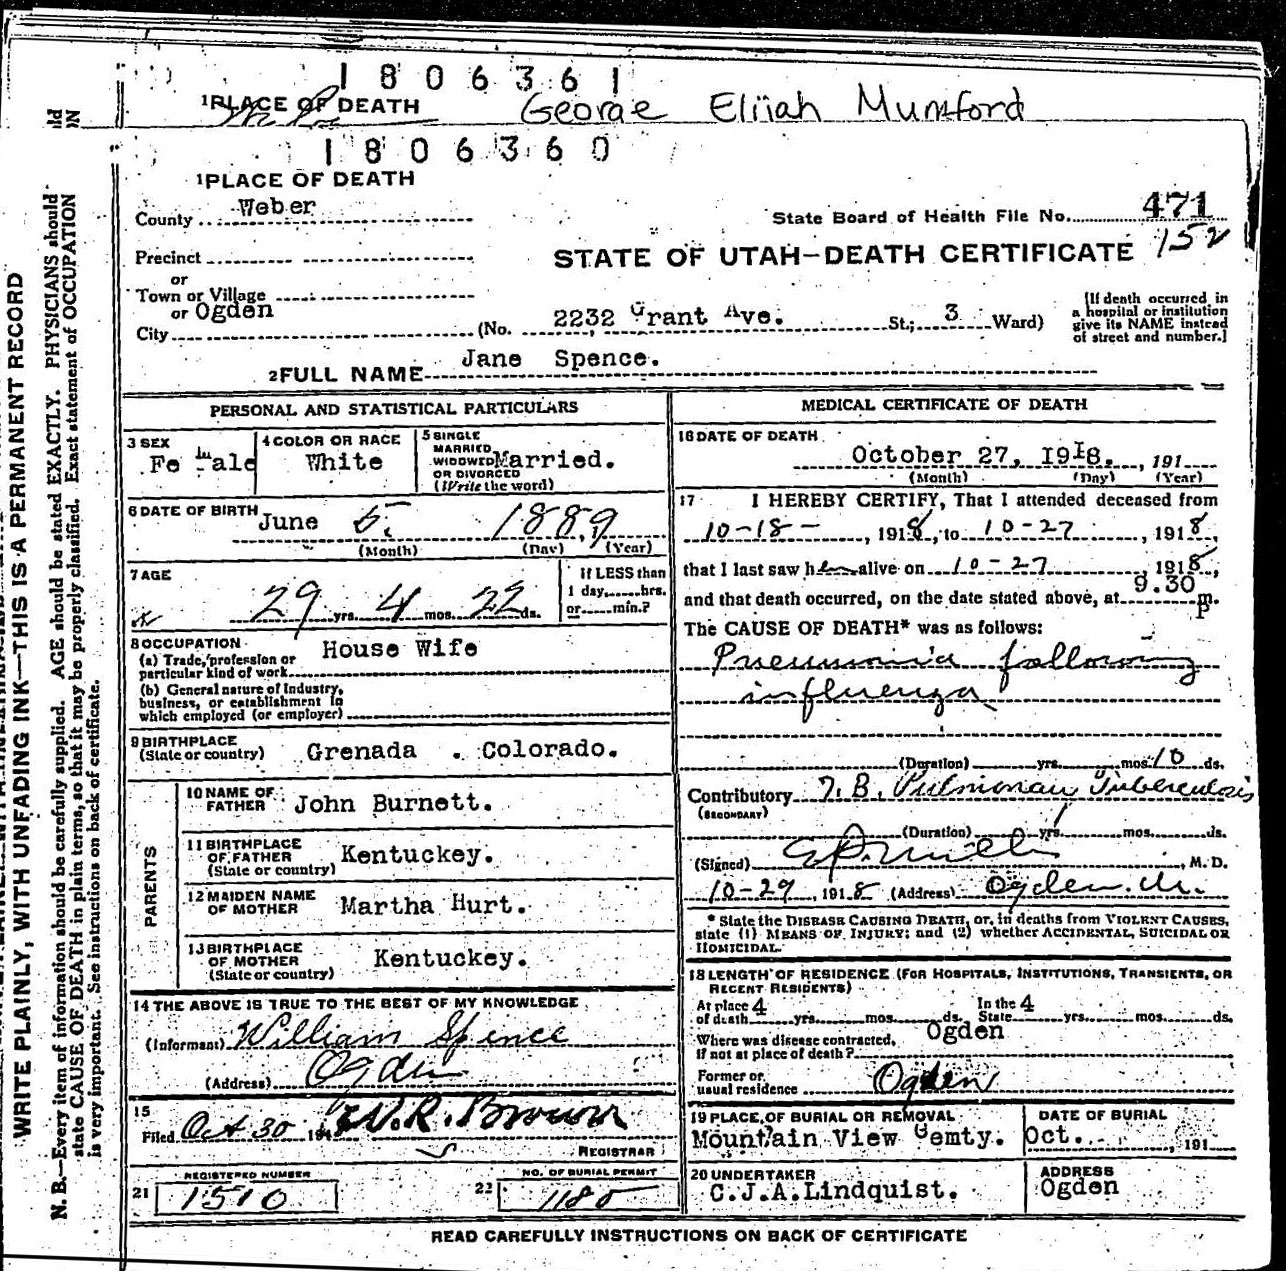 1806361
1PLACE OF DEATH George Elijah Mumford
1806360
1PLACE OF DEATH
County Weber
State Board of Health File No. 471
Precinct
STATE OF UTAH—DEATH CERTIFICATE 152
or
Town or Village
or Ogden
City (No. 2232 Grant Ave. St.; 3 Ward)
[If death occurred in
a hospital or institution
give its NAME instead
of street and number.]
2FULL NAME Jane Spence.
PERSONAL AND STATISTICAL PARTICULARS
3 SEX
Fe male
4 COLOR OR RACE
White
5 SINGLE
MARRIED
WIDOWED Married.
OR DIVORCED
(Write the word)
6 DATE OF BIRTH June 5, 1889
(Month) (Day) (Year)
7 AGE
29 yrs. 4 mos. 22 ds.
If LESS than
1 day,......hrs.
or......min.?
8 OCCUPATION
(a) Trade, profession or
particular kind of work House Wife
(b) General nature of Industry,
business, or establishment in
which employed (or employer)
9 BIRTHPLACE
(State or country) Grenada . Colorado.
PARENTS
10 NAME OF
FATHER John Burnett.
11 BIRTHPLACE
OF FATHER
(State or country) Kentuckey.
12 MAIDEN NAME
OF MOTHER Martha Hurt.
13 BIRTHPLACE
OF MOTHER
(State or country) Kentuckey.
14 THE ABOVE IS TRUE TO THE BEST OF MY KNOWLEDGE
(Informant) William Spence
(Address) Ogden
15
Filed Oct 30 191 W.R. Brown
REGISTRAR
REGISTERED NUMBER
21 1510
NO. OF BURIAL PERMIT
22 1180
MEDICAL CERTIFICATE OF DEATH
16 DATE OF DEATH
October 27, I9I8. , 191
(Month) (Day) (Year)
17 I HEREBY CERTIFY, That I attended deceased from
10-18- , 1918, to 10-27 , 1918,
that I last saw her alive on 10-27 1918,
and that death occurred, on the date stated above, at 9.30 P m.
The CAUSE OF DEATH* was as follows:
Pneumonia following
influenza
(Duration) yrs. mos. 10 ds.
Contributory T.B. Pulmonary Tuberculosis
(SECONDARY)
(Duration) 1 yrs. mos. ds.
(Signed) , M. D.
10-29, 1918 (Address) Ogden.
* State the DISEASE CAUSING DEATH, or, in deaths from VIOLENT CAUSES,
state (1) MEANS OF INJURY; and (2) whether ACCIDENTAL, SUICIDAL OR
HOMICIDAL.
18 LENGTH OF RESIDENCE (FOR HOSPITALS, INSTITUTIONS, TRANSIENTS, OR
RECENT RESIDENTS)
At place 4 In the 4
of death yrs. mos. ds. State yrs. mos. ds.
Where was disease contracted, Ogden
If not at place of death?
Former or
usual residence Ogden
19 PLACE OF BURIAL OR REMOVAL
Mountain View Cemty.
DATE OF BURIAL
Oct. , 191
20 UNDERTAKER
C.J.A.Lindquist.
ADDRESS
Ogden
READ CAREFULLY INSTRUCTIONS ON BACK OF CERTIFICATE
WRITE PLAINLY, WITH UNFADING INK—THIS IS A PERMANENT RECORD
N. B.—Every item of information should be carefully supplied. AGE should be stated EXACTLY. PHYSICIANS should
state CAUSE OF DEATH in plain terms, so that it may be properly classified. Exact statement of OCCUPATION
is very important. See instructions on back of certificate.